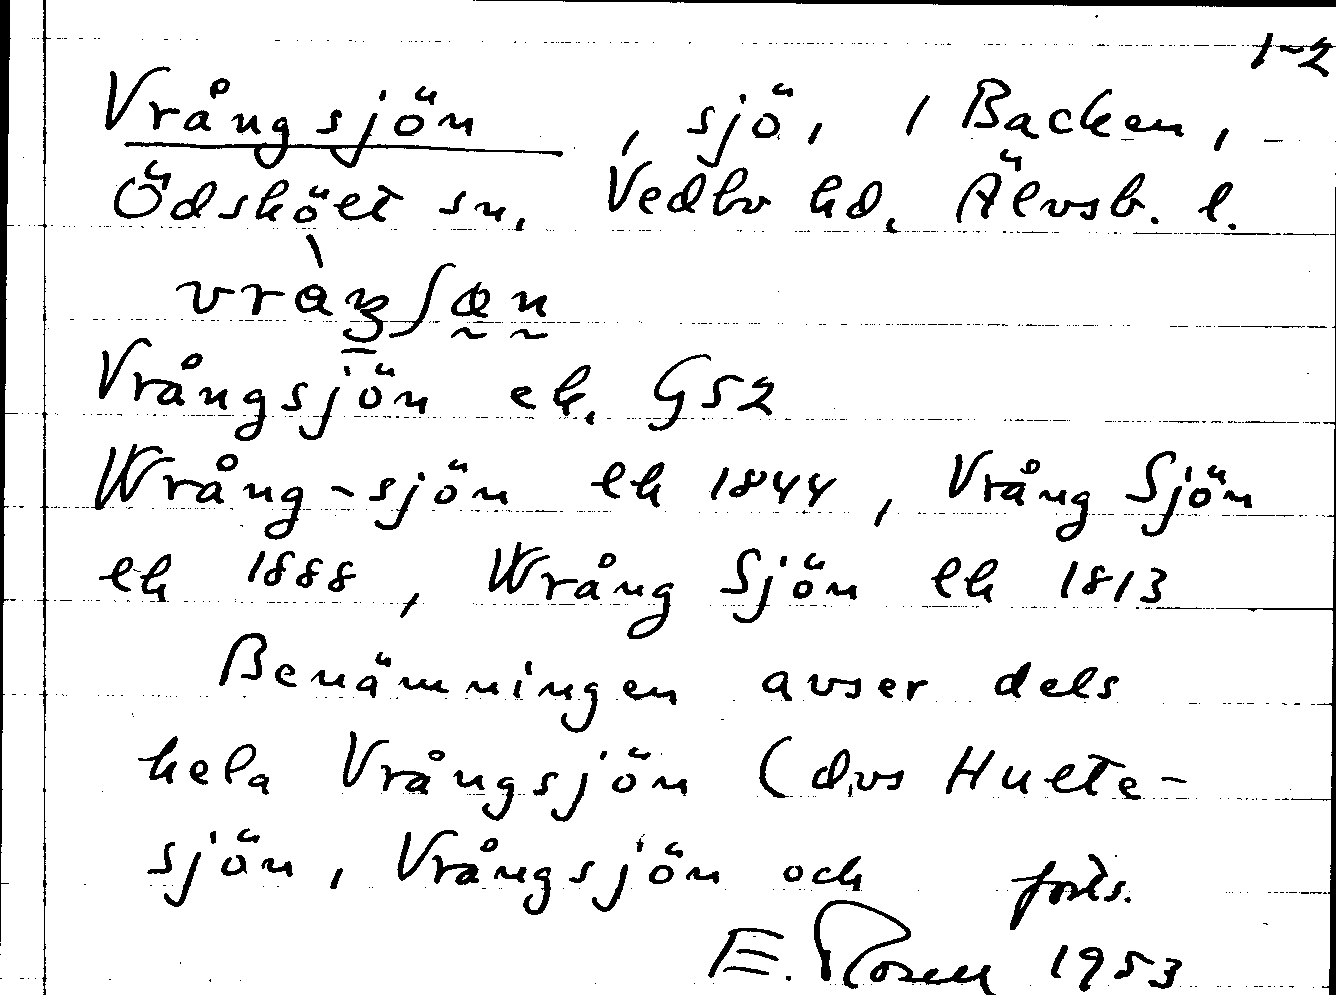 1-2
Vrångsjön, sjö, / Backen,
Ödskölt sn, Vedbo hd, Älvsb. l.
Vrångsjön ek. G52
Wrång-sjön lk 1844, Vrång Sjön
lk 1888, Wrång Sjön lk 1813
Benämningen avser dels
hela Vrångsjön (dvs Hulte-
sjön, Vrångsjön och forts.
E. Rosell 1953